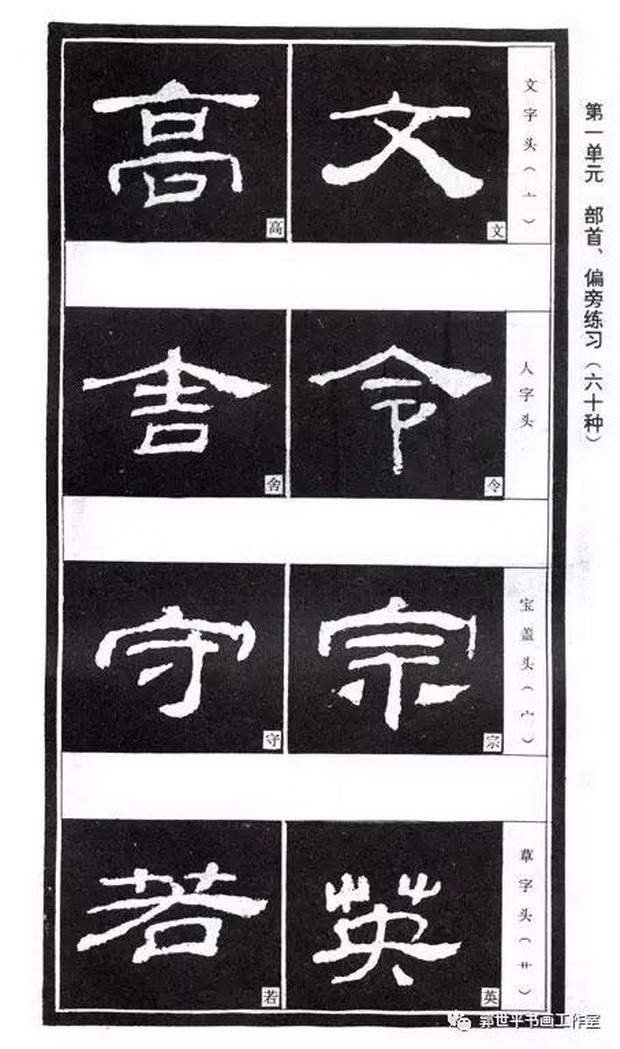 第一单元 部首、偏旁练习（六十种）
文字头（亠）
文
文
高
高
人字头
令
令
舍
舍
宝盖头（宀）
宗
宗
守
守
草字头（艹）
英
英
若
若
郭世平书画工作室